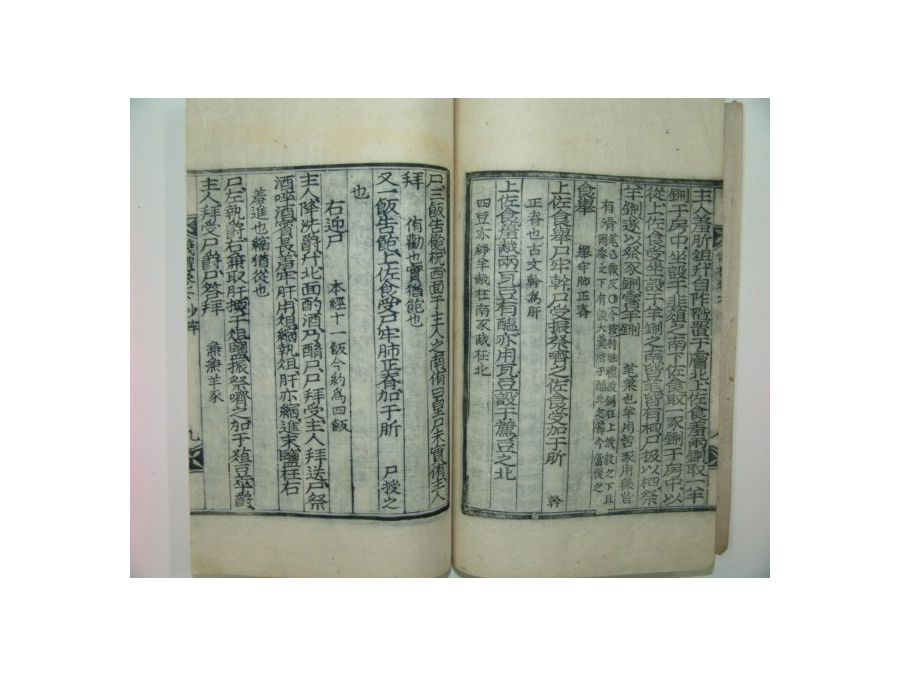 主人羞肵俎升自阼階置于膚北上佐食羞兩鉶取一羊
鉶于房中坐設于韭菹之南下佐食取一豕鉶于房中以
從上佐食受坐設于羊鉶之南皆芼皆有柶尸扱以柶祭
羊鉶遂以祭豕鉶嘗羊鉶 芼菜也羊用苦豕用薇皆
有滑
食舉 舉牢肺正脊
上佐食舉尸牢幹尸受振祭嚌之佐食受加于肵 幹
正脅也古文幹爲肝
上佐食羞胾兩瓦豆有醢亦用瓦豆設于薦豆之北
四豆亦綪羊胾在南豕胾在北
尸三飯告飽祝西面于主人之南侑曰皇尸未實侑主人
拜 侑勸也實猶飽也
又一飯告飽上佐食受尸牢肺正脊加于肵 尸授之
也
右迎尸 本經十一飯今約爲四飯
主人降洗爵升北面酌酒乃酳尸尸拜受主人拜送尸祭
酒啐酒賓長羞牢肝用俎縮執俎肝亦縮進末鹽在右
羞進也縮猶從也
尸左執爵右兼取肝擩于俎鹽振祭嚌之加于葅豆卒爵
主人拜受尸爵尸答拜 兼兼羊豕
九